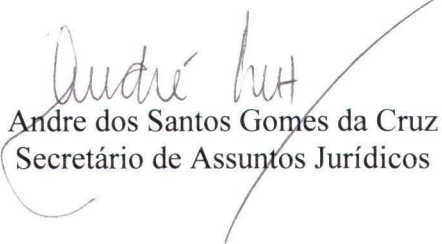 André
Andre dos Santos Gomes da Cruz
Secretário de Assuntos Jurídicos